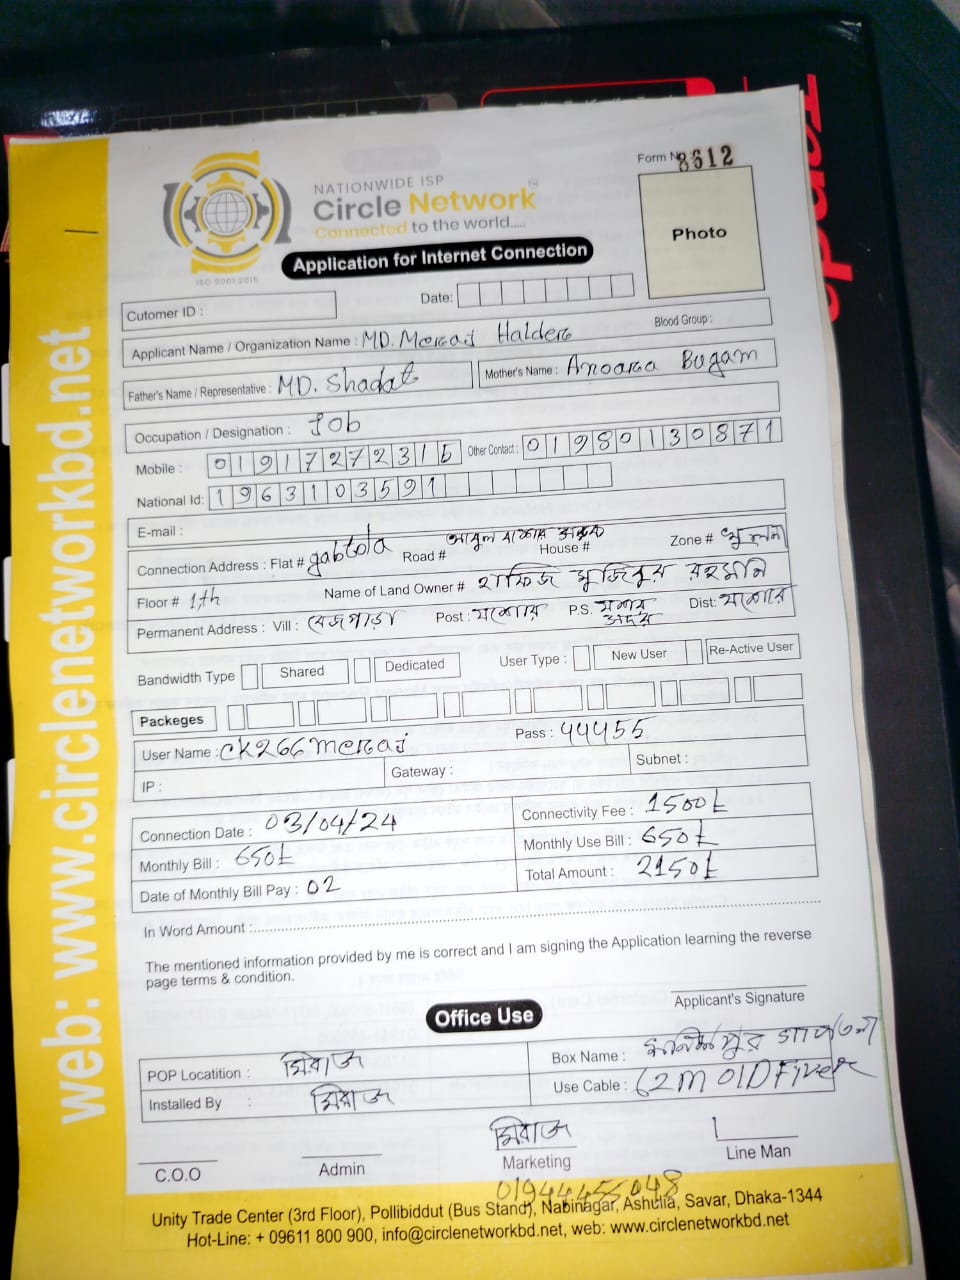 NATIONWIDE ISP
Circle Network
Connected to the world.....
ISO 9001:2015
Form No 8612
Photo
Application for Internet Connection
Cutomer ID :
Date:
Applicant Name / Organization Name : MD. Meraj Halder
Blood Group :
Father's Name / Representative : MD. Shadat
Mother's Name : Anoara Bugam
Occupation / Designation : Job
Mobile : 01917272315 Other Contact : 01980130871
National Id: 1963103591
E-mail :
Connection Address : Flat # gabtola Road # House # Zone #
Floor # 1,th Name of Land Owner # হাফিজ মুজিবুর রহমান
Permanent Address : Vill : বেজপাড়া Post : যশোর P.S. যশোর সদর Dist: যশোর
Bandwidth Type Shared Dedicated User Type : New User Re-Active User
Packeges
User Name : CK266meraj Pass : 44455
IP : Gateway : Subnet :
Connection Date : 03/04/24 Connectivity Fee : 1500৳
Monthly Bill : 650৳ Monthly Use Bill : 650৳
Date of Monthly Bill Pay : 02 Total Amount : 2150৳
In Word Amount :
The mentioned information provided by me is correct and I am signing the Application learning the reverse
page terms & condition.
Applicant's Signature
Office Use
POP Locatition : মিরাজ Box Name :
Installed By : মিরাজ Use Cable : 62M OLD Fiver
মিরাজ
C.O.O Admin Marketing Line Man
01944455048
Unity Trade Center (3rd Floor), Pollibiddut (Bus Stand), Nabinagar, Ashulia, Savar, Dhaka-1344
Hot-Line: + 09611 800 900, info@circlenetworkbd.net, web: www.circlenetworkbd.net
web: www.circlenetworkbd.net